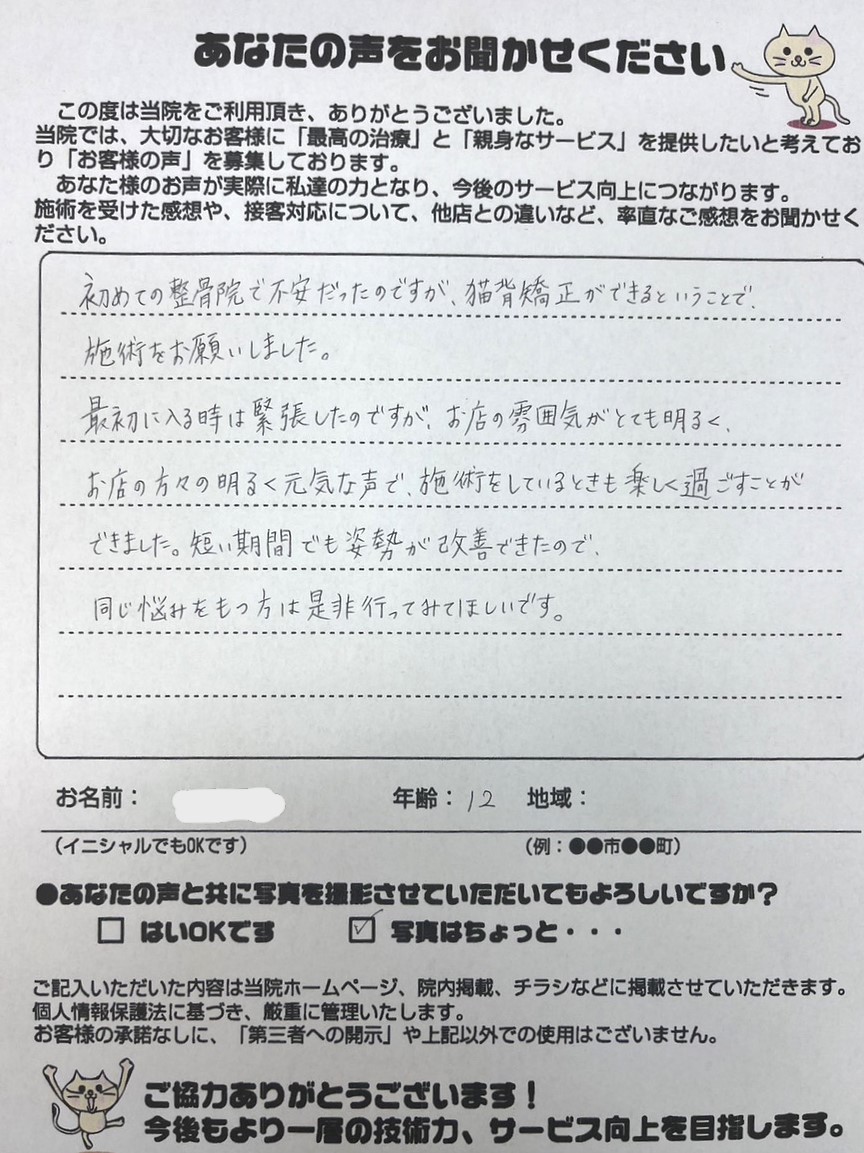 あなたの声をお聞かせください
この度は当院をご利用頂き、ありがとうございました。
当院では、大切なお客様に「最高の治療」と「親身なサービス」を提供したいと考えてお
り「お客様の声」を募集しております。
あなた様のお声が実際に私達の力となり、今後のサービス向上につながります。
施術を受けた感想や、接客対応について、他店との違いなど、率直なご感想をお聞かせく
ださい。
初めての整骨院で不安だったのですが、猫背矯正ができるということで、
施術をお願いしました。
最初に入る時は緊張したのですが、お店の雰囲気がとても明るく、
お店の方々の明るく元気な声で、施術をしているときも楽しく過ごすことが
できました。短い期間でも姿勢が改善できたので、
同じ悩みをもつ方は是非行ってみてほしいです。
お名前： 年齢：12 地域：
（イニシャルでもOKです） （例：●●市●●町）
●あなたの声と共に写真を撮影させていただいてもよろしいですか？
□ はいOKです ☑ 写真はちょっと・・・
ご記入いただいた内容は当院ホームページ、院内掲載、チラシなどに掲載させていただきます。
個人情報保護法に基づき、厳重に管理いたします。
お客様の承諾なしに、「第三者への開示」や上記以外での使用はございません。
ご協力ありがとうございます！
今後もより一層の技術力、サービス向上を目指します。